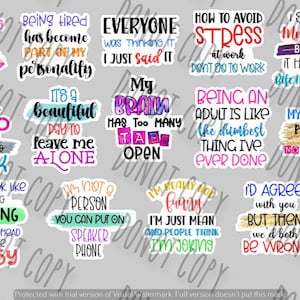 BEING tired
has become
PART OF MY
personality
EVERYONE
WAS THINKING IT
I JUST said IT
HOW TO AVOID
STRESS
at work
DON'T GO TO WORK
IT'S A
beautiful
DAY TO
leave me
ALONE
My
BRAIN
HAS TOO MANY
TABS
OPEN
BEING AN
ADULT IS LIKE
the dumbest
THING I'VE
EVER DONE
I'M NOT A
PERSON
YOU CAN PUT ON
SPEAKER
PHONE
I'M REALLY NOT
Funny
I'M JUST MEAN
AND PEOPLE THINK
I'M JOKING
I'D AGREE
with you
BUT THEN
we'd both
BE WRONG
DO NOT COPY
Protected with trial version of Visual Watermark. Full version doesn't put this mark.